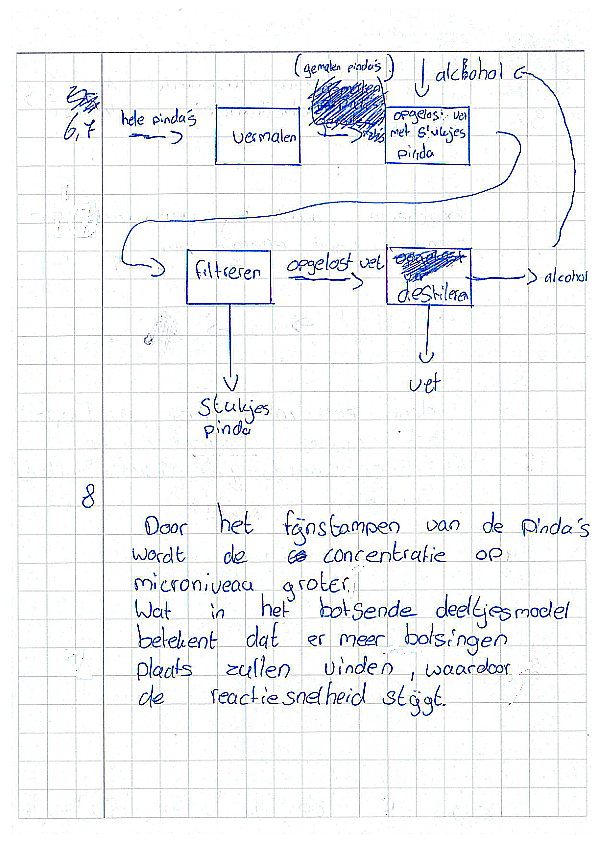 (gemalen pinda's)
alcohol
6,7
hele pinda's
vermalen
opgelost vet
met stukjes
pinda
filtreren
opgelost vet
destileren
alcohol
vet
Stukjes
pinda
8
Door het fijnstampen van de pinda's
wordt de concentratie op
microniveau groter.
Wat in het botsende deeltjesmodel
betekent dat er meer botsingen
plaats zullen vinden, waardoor
de reactiesnelheid stijgt.